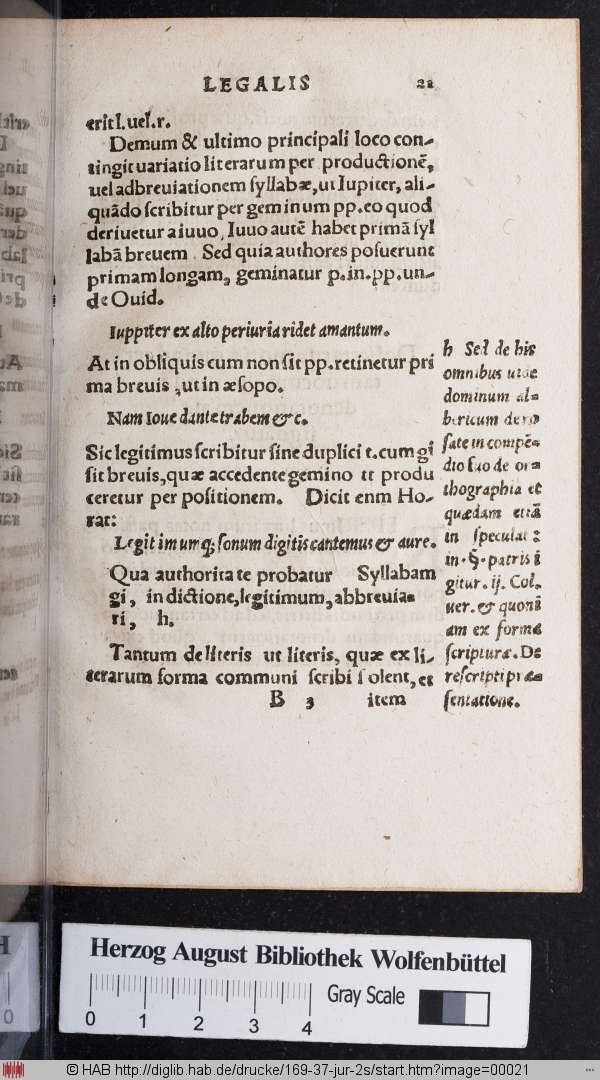 LEGALIS 21
erit l. uel .r.
Demum & ultimo principali loco con-
tingit uariatio literarum per productionē,
uel adbreuiationem syllabæ, ut Iupiter, ali-
quãdo scribitur per geminum pp. eo quod
deriuetur a iuuo, Iuuo autē habet primã syl
labã breuem. Sed quia authores posuerunt
primam longam, geminatur p. in. pp. un-
de Ouid.
Iuppiter ex alto periuria ridet amantum.
At in obliquis cum non sit pp. retinetur pri
ma breuis, ut in æsopo.
Nam Ioue dante trabem &c.
Sic legitimus scribitur sine duplici t. cum gi
sit breuis, quæ accedente gemino tt produ
ceretur per positionem. Dicit enm Ho-
rat:
Legitimumq; sonum digitis cantemus & aure.
Qua authoritate probatur Syllabam
gi, in dictione, legitimum, abbreuia-
ri, h.
Tantum de literis ut literis, quæ ex li-
terarum forma communi scribi solent, et
B 3 item
h Sed de his
omnibus uide
dominum al-
bericum de ro
sate in compē-
dio suo de or-
thographia et
quædam etiã
in speculat:
in . §. patris i
gitur. ij. Col.
uer. & quoni
am ex forma
scripturæ. De
rescripti præ-
sentatione.
Herzog August Bibliothek Wolfenbüttel
Gray Scale
0 1 2 3 4
© HAB http://diglib.hab.de/drucke/169-37-jur-2s/start.htm?image=00021